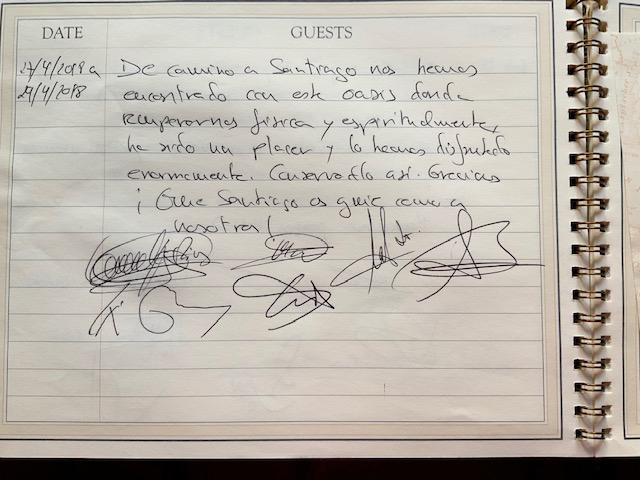 DATE GUESTS
27/4/2018 a De camino a Santiago nos hemos
29/4/2018 encontrado con este oasis donde
recuperarnos física y espiritualmente,
ha sido un placer y lo hemos disfrutado
enormemente. Conservadlo así. Gracias
¡Que Santiago os guíe como a
nosotros!